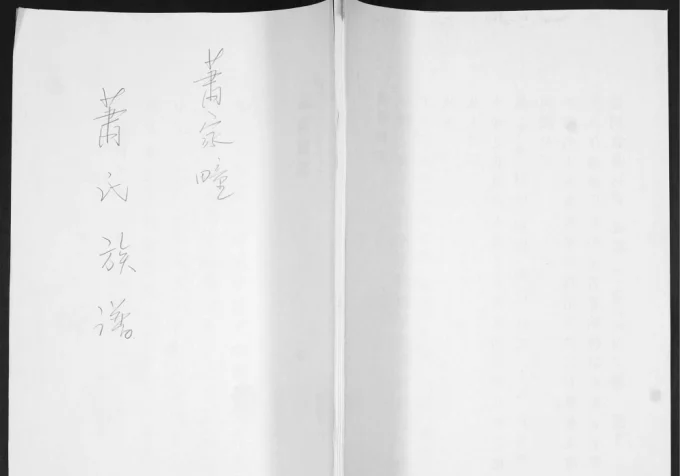 萧家疃
萧氏族谱